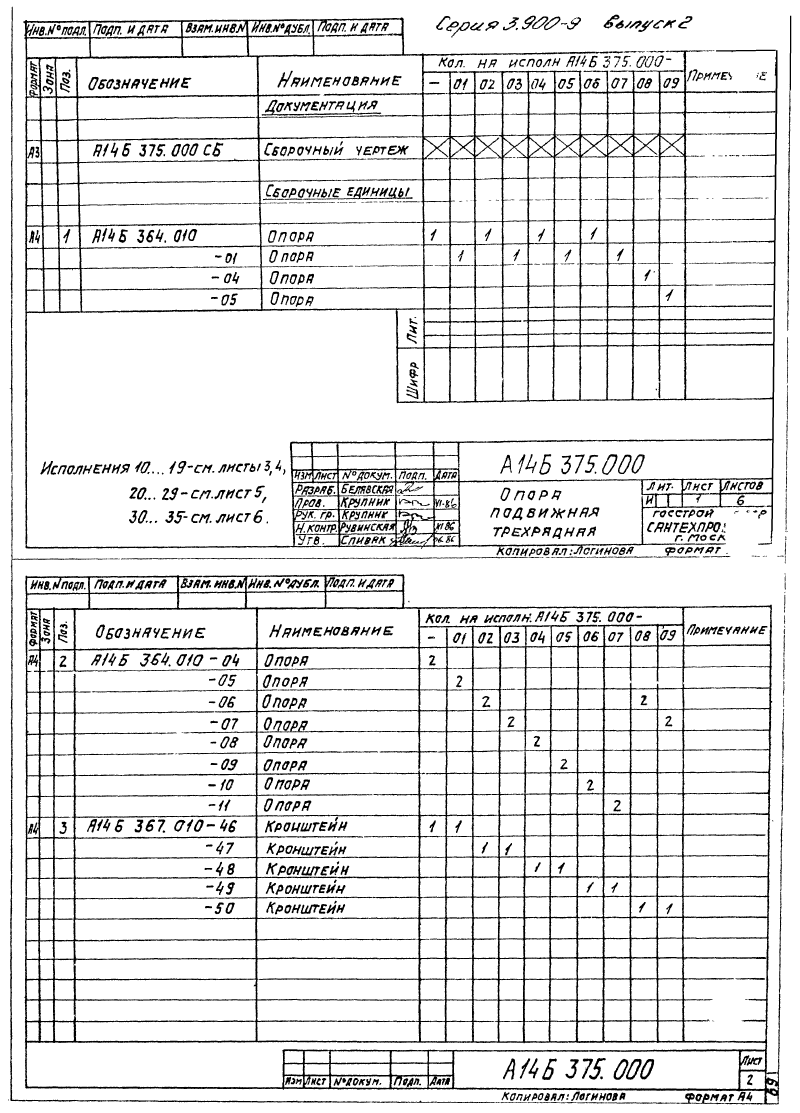 Серия 3.900-9 выпуск 2
Инв.№ подл. Подп. и дата Взам.инв.№ Инв.№ дубл. Подп. и дата
Формат Зона Поз. Обозначение Наименование Кол. на исполн А14Б 375.000-
- 01 02 03 04 05 06 07 08 09
Документация
А3 А14Б 375.000 СБ Сборочный чертеж
Сборочные единицы
А4 1 А14Б 364.010 Опора 1 1 1 1
-01 Опора 1 1 1 1
-04 Опора 1
-05 Опора 1
Лит.
Шифр
Исполнения 10... 19-см. листы 3,4,
20... 29-см. лист 5,
30... 35-см. лист 6.
Изм Лист № докум. Подп. Дата
Разраб. Белявская
Пров. Крупник VI-86
Рук. гр. Крупник
Н.контр. Рувинская VI 86
Утв. Спивак 06.86
А14Б 375.000
Опора
подвижная
трехрядная
Лит. Лист Листов
И 1 6
Госстрой
г. Моск
Копировал: Логинова Формат
Инв.№ подл. Подп. и дата Взам. инв.№ Инв.№ дубл. Подп. и дата
Формат Зона Поз. Обозначение Наименование Кол. на исполн. А14Б 375.000- Примечание
- 01 02 03 04 05 06 07 08 09
А4 2 А14Б 364.010-04 Опора 2
-05 Опора 2
-06 Опора 2 2
-07 Опора 2 2
-08 Опора 2
-09 Опора 2
-10 Опора 2
-11 Опора 2
А4 3 А14Б 367.010-46 Кронштейн 1 1
-47 Кронштейн 1 1
-48 Кронштейн 1 1
-49 Кронштейн 1 1
-50 Кронштейн 1 1
Изм Лист № докум. Подп. Дата
А14Б 375.000
Лист
2
Копировал: Логинова Формат А4
69